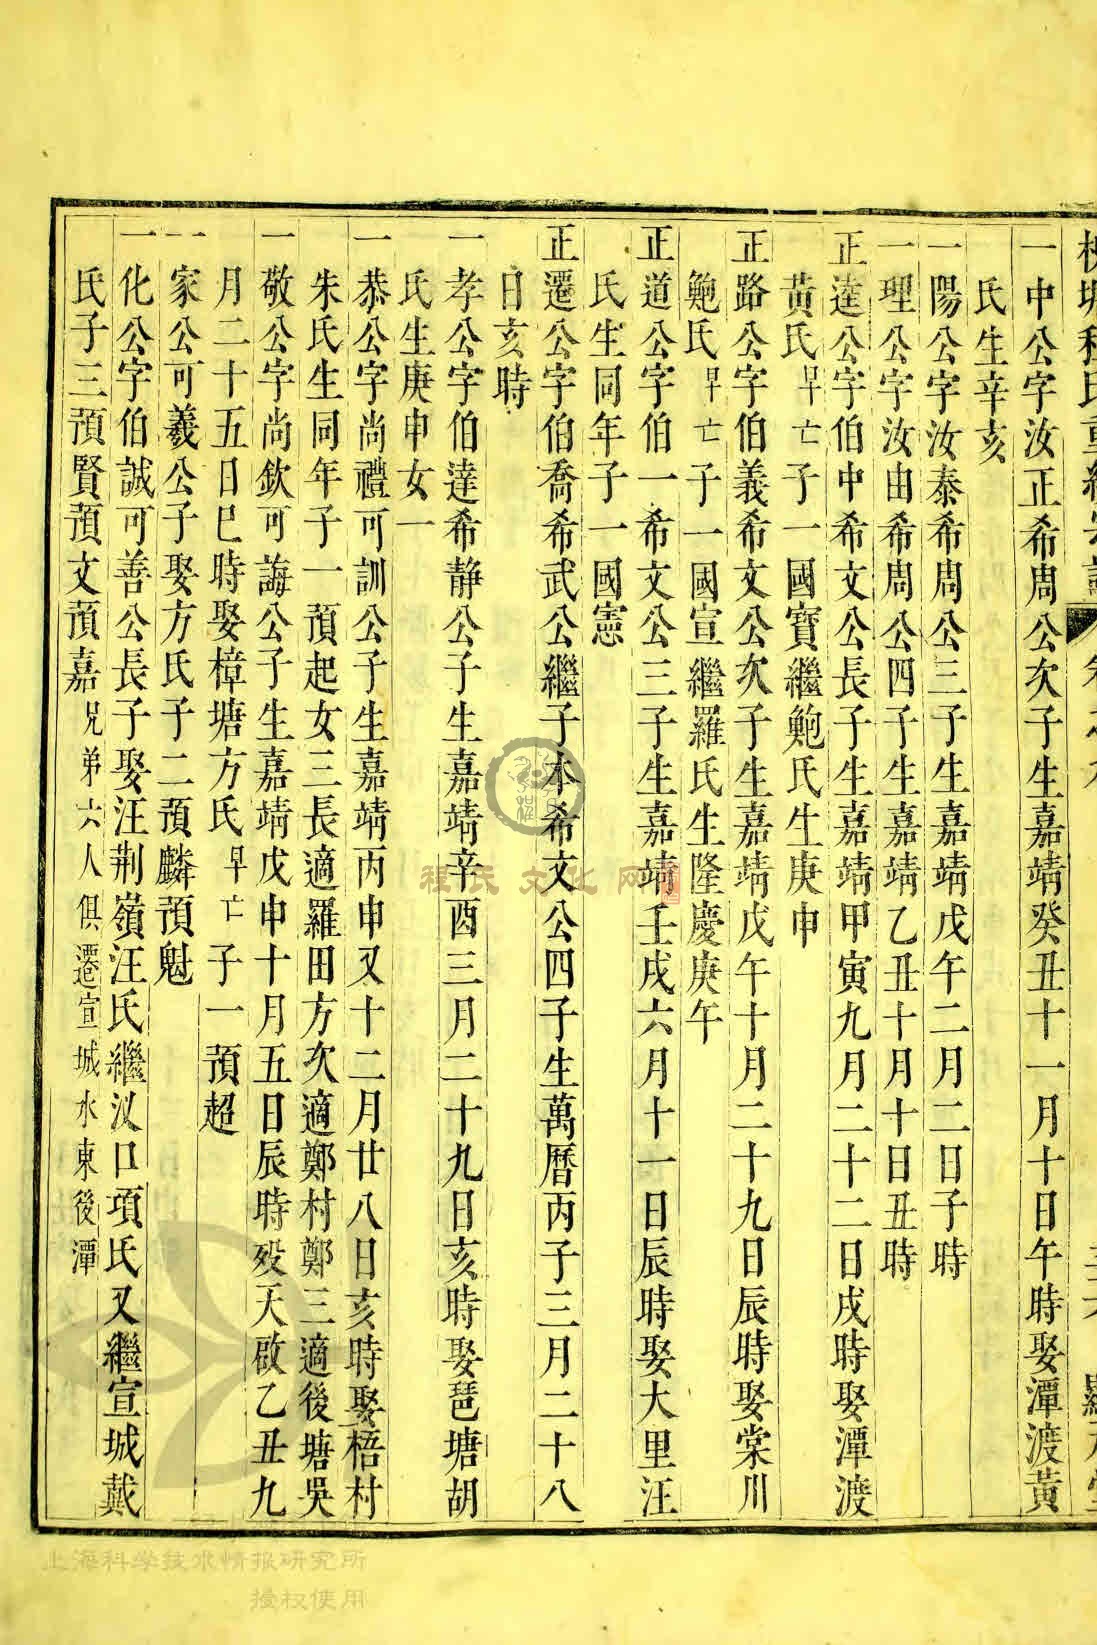 一中公字汝正希周公次子生嘉靖癸丑十一月十日午時娶潭渡黃
氏生辛亥
一陽公字汝泰希周公三子生嘉靖戊午二月二日子時
一理公字汝由希周公四子生嘉靖乙丑十月十日丑時
正達公字伯中希文公長子生嘉靖甲寅九月二十二日戌時娶潭渡
黃氏早亡子一國寶繼鮑氏生庚申
正路公字伯義希文公次子生嘉靖戊午十月二十九日辰時娶棠川
鮑氏早亡子一國宣繼羅氏生隆慶庚午
正道公字伯一希文公三子生嘉靖壬戌六月十一日辰時娶大里汪
氏生同年子一國憲
正遷公字伯喬希武公繼子本希文公四子生萬曆丙子三月二十八
日亥時
一孝公字伯達希靜公子生嘉靖辛酉三月二十九日亥時娶琶塘胡
氏生庚申女一
一恭公字尚禮可訓公子生嘉靖丙申又十二月廿八日亥時娶梧村
朱氏生同年子一預起女三長適羅田方次適鄭村鄭三適後塘吳
一敬公字尚欽可誨公子生嘉靖戊申十月五日辰時歿天啟乙丑九
月二十五日巳時娶樟塘方氏早亡子一預超
一家公可羲公子娶方氏子二預麟預魁
一化公字伯誠可善公長子娶汪荆嶺汪氏繼汊口項氏又繼宣城戴
氏子三預賢預文預嘉兄弟六人俱遷宣城水東後潭
程氏文化网
上海科学技术情报研究所
授权使用